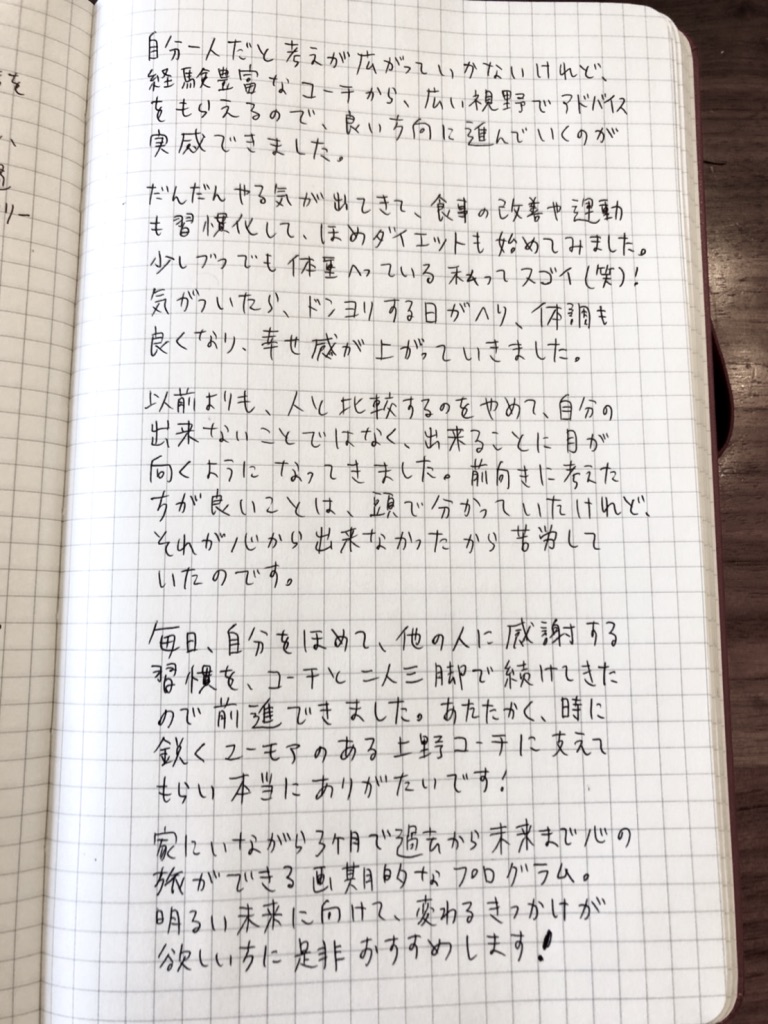 を
、
リー
自分一人だと考えが広がっていかないけれど、
経験豊富なコーチから、広い視野でアドバイス
をもらえるので、良い方向に進んでいくのが
実感できました。
だんだんやる気が出てきて、食事の改善や運動
も習慣化して、ほめダイエットも始めてみました。
少しづつでも体重へっている私ってスゴイ(笑)!
気がついたら、ドンヨリする日がへり、体調も
良くなり、幸せ感が上がっていきました。
以前よりも、人と比較するのをやめて、自分の
出来ないことではなく、出来ることに目が
向くようになってきました。前向きに考えた
方が良いことは、頭で分かっていたけれど、
それが心から出来なかったから苦労して
いたのです。
毎日、自分をほめて、他の人に感謝する
習慣を、コーチと二人三脚で続けてきた
ので前進できました。あたたかく、時に
鋭くユーモアのある上野コーチに支えて
もらい本当にありがたいです!
家にいながら3ケ月で過去から未来まで心の
旅ができる画期的なプログラム。
明るい未来に向けて、変わるきっかけが
欲しい方に是非おすすめします!